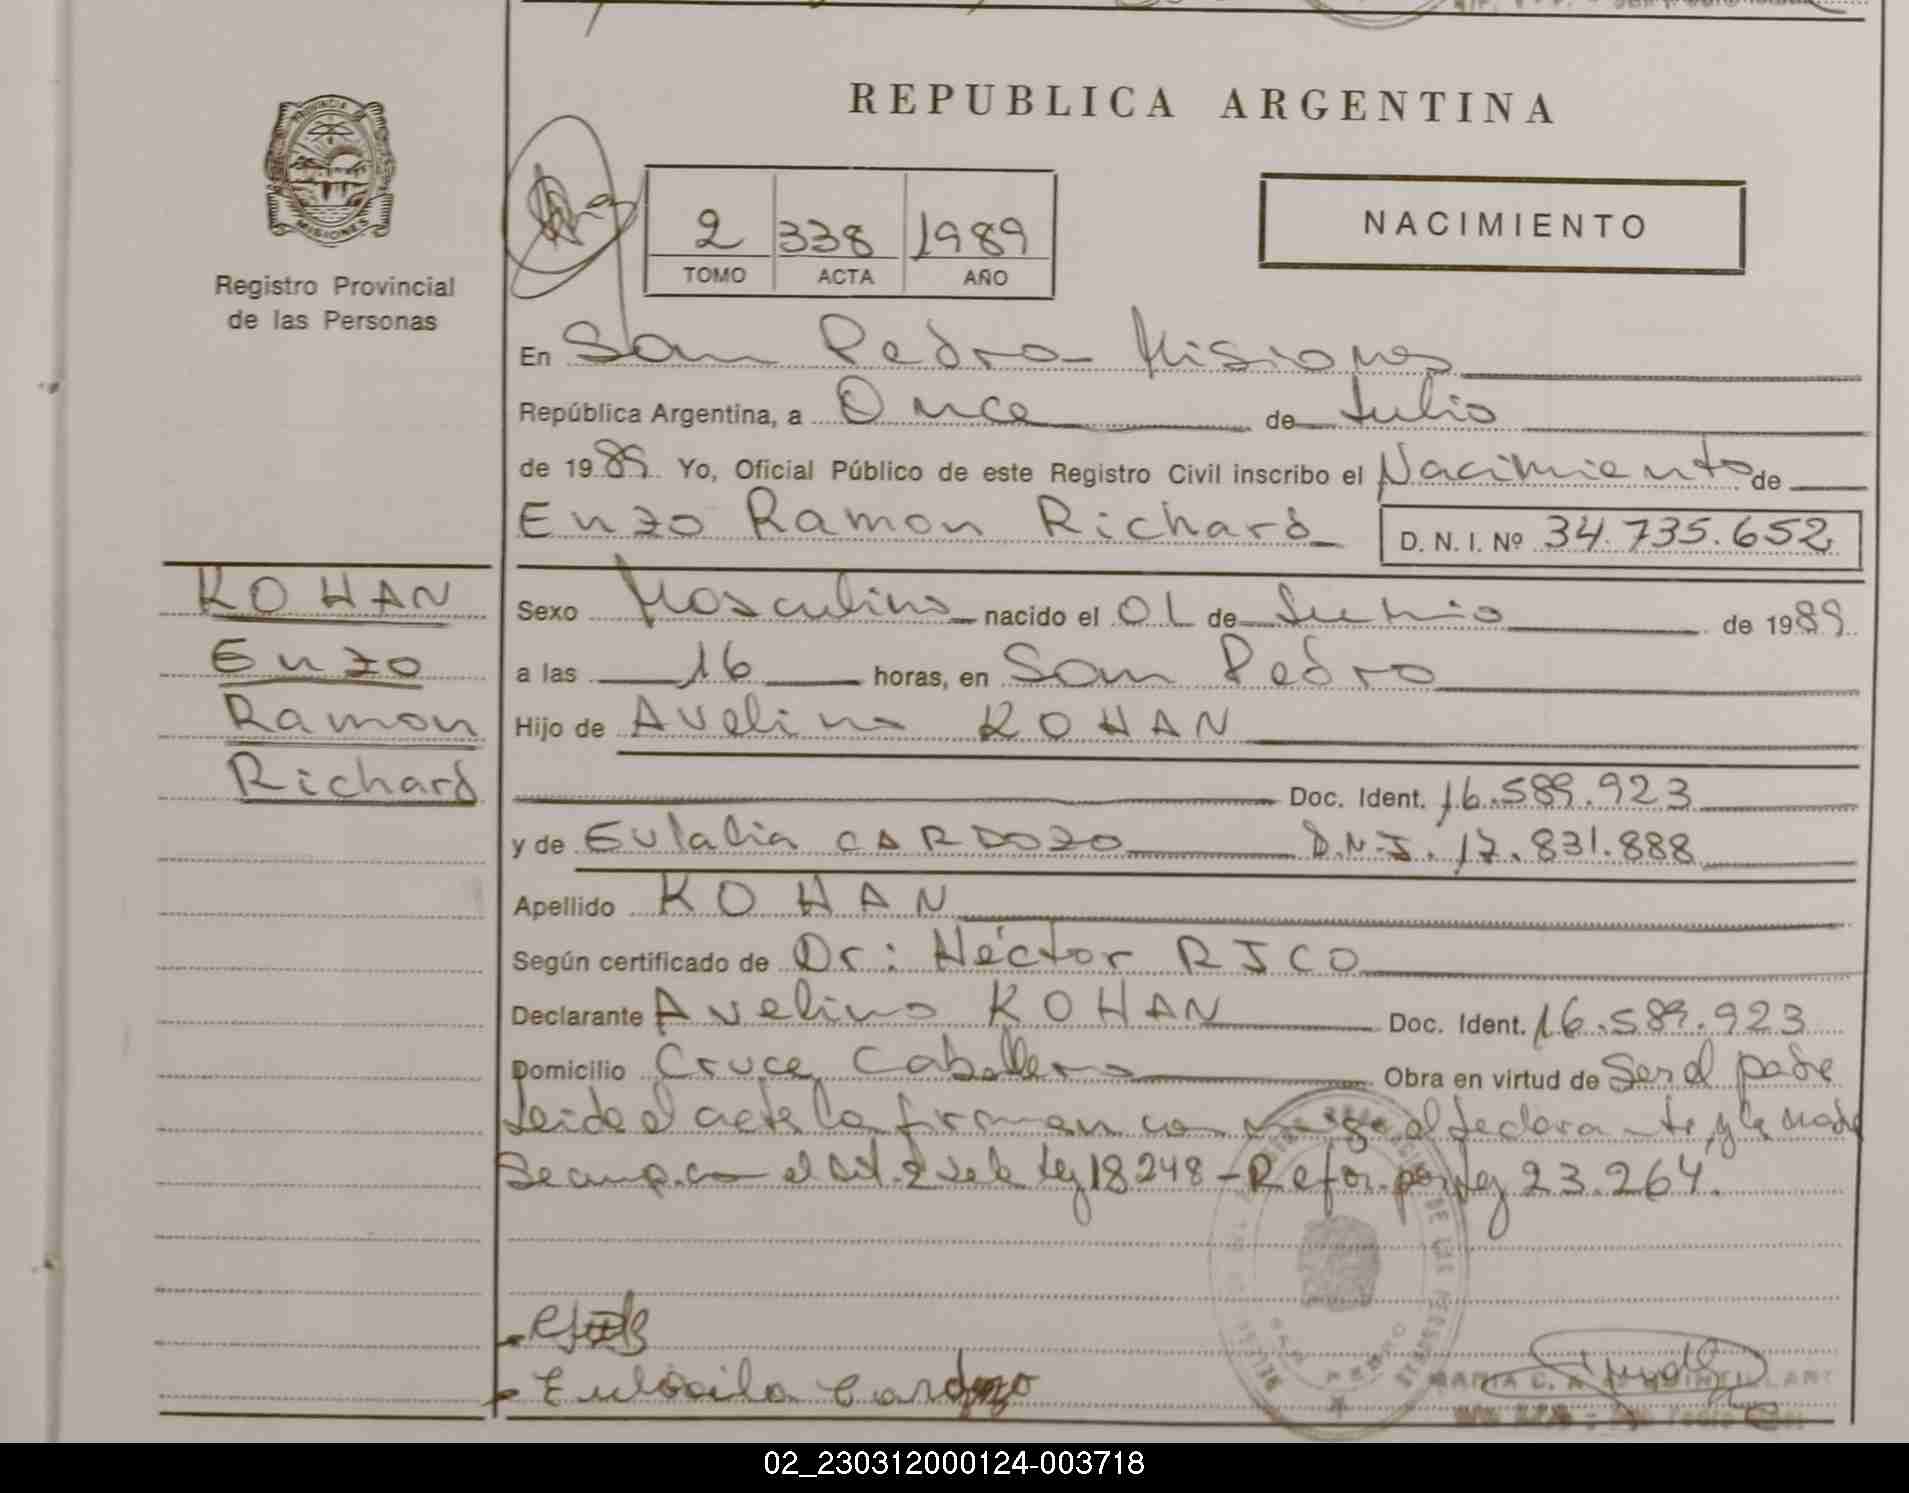 REPUBLICA ARGENTINA
PROVINCIA
MISIONES
Registro Provincial
de las Personas
2 338 1989
TOMO ACTA AÑO
NACIMIENTO
En San Pedro- Misiones
República Argentina, a Once de Julio
de 1989 Yo, Oficial Público de este Registro Civil inscribo el Nacimiento de
Enzo Ramon Richard D. N. I. Nº 34.735.652
KOHAN
Enzo
Ramon
Richard
Sexo Masculino nacido el 01 de Junio de 1989
a las 16 horas, en San Pedro
Hijo de Avelino KOHAN
Doc. Ident. 16.589.923
y de Eulalia CARDOZO D.N.I. 17.831.888
Apellido KOHAN
Según certificado de Dr: Héctor RICO
Declarante Avelino KOHAN Doc. Ident. 16.589.923
Domicilio Cruce Caballero Obra en virtud de Ser el padre
Leida el acta la firman conmigo el declarante, y la madre
Se cump. con el art. 2 de la Ley 18248 - Refor. por Ley 23.264.
Eulocila Cardozo
SAN PEDRO
02_230312000124-003718